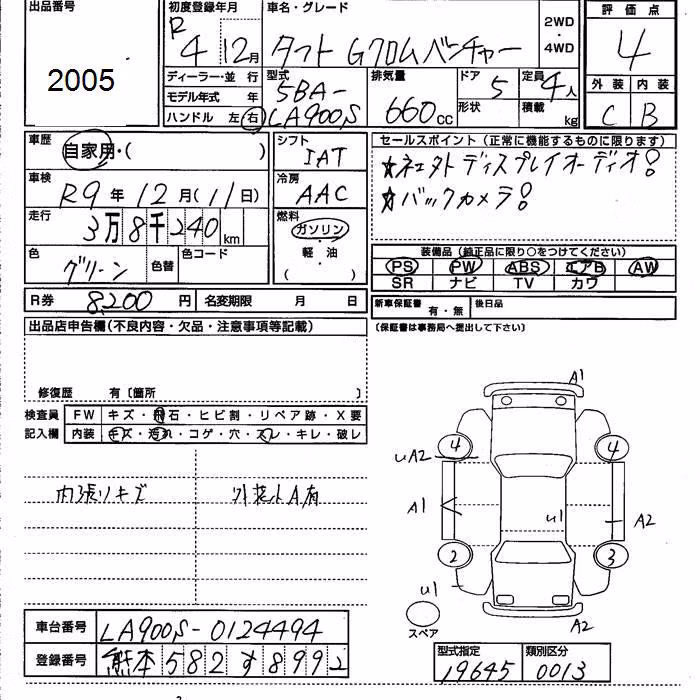 出品番号
2005
初度登録年月
R 4年 12月
車名・グレード
タフト Gクロムベンチャー
2WD
・
4WD
評価点
4
外装 内装
C B
ディーラー・並行
モデル年式 年
ハンドル 左 右
型式
5BA-
LA900S
排気量
660cc
ドア
5
形状
定員
4人
積載
kg
車歴
自家用・( )
車検
R9年12月(11日)
走行
3万8千240km
色
グリーン
色替
色コード
シフト
IAT
冷房
AAC
燃料
ガソリン
・
軽・油
( )
セールスポイント(正常に機能するものに限ります)
☆ネオトディスプレイオーディオ!
☆バックカメラ!
装備品(純正品に限り○をつけてください)
PS PW ABS エアB AW
SR ナビ TV カワ
R券 8,200円 名変期限 月 日
新車保証書 有・無 後日品
(保証書は事務局へ提出して下さい)
出品店申告欄(不良内容・欠品・注意事項等記載)
修復歴 有〔箇所 〕
検査員 FW キズ・飛石・ヒビ割・リペア跡・X要
記入欄 内装 キズ・汚れ・コゲ・穴・スレ・キレ・破レ
内張りキズ
外装小A有
A1
4 4
uA2
A1
u1
A2
2 3
u1
A2
スペア
車台番号 LA900S-0124494
登録番号 熊本582す8992
型式指定 類別区分
19645 0013